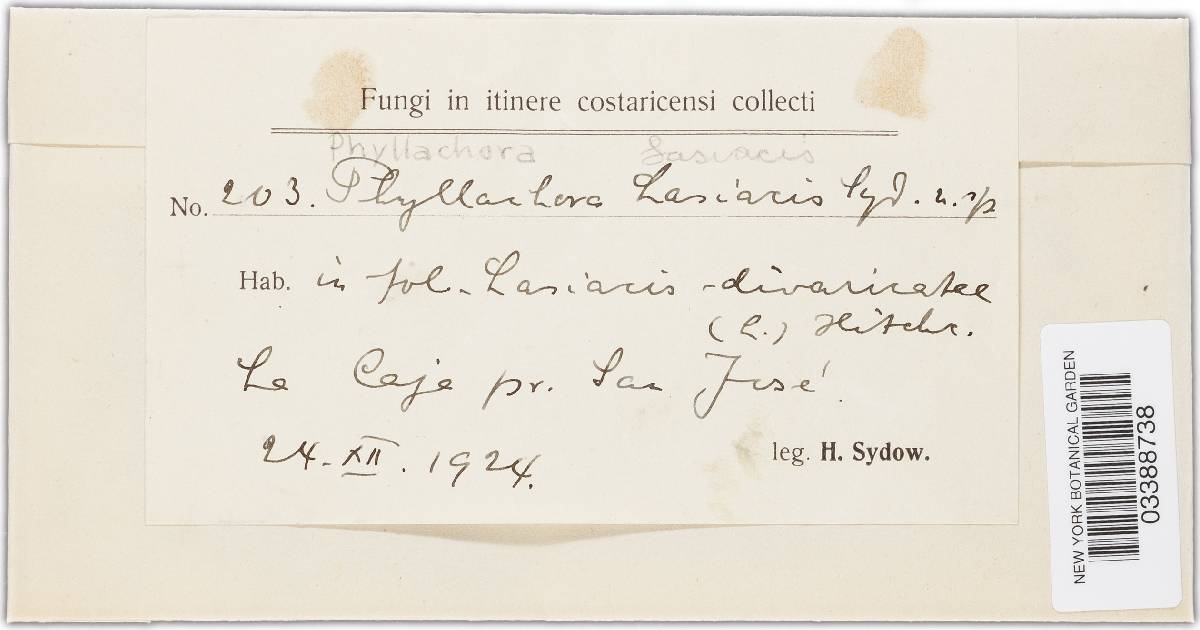 Fungi in itinere costaricensi collecti
Phyllachora Lasiacis
No. 203. Phyllachora Lasiacis Syd. n. sp
Hab. in fol. Lasiacis divaricatae
(L.) Hitchc.
La Caja pr. San José
24. XII. 1924.
leg. H. Sydow.
NEW YORK BOTANICAL GARDEN
03388738